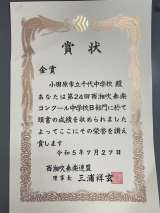 賞状
金賞
小田原市立千代中学校 殿
あなたは第24回西湘吹奏楽
コンクール中学校B部門に於て
頭書の成績を収められました
よってここにその栄誉を讃え
賞します
令和5年7月27日
西湘吹奏楽連盟
理事長 三浦祥玄